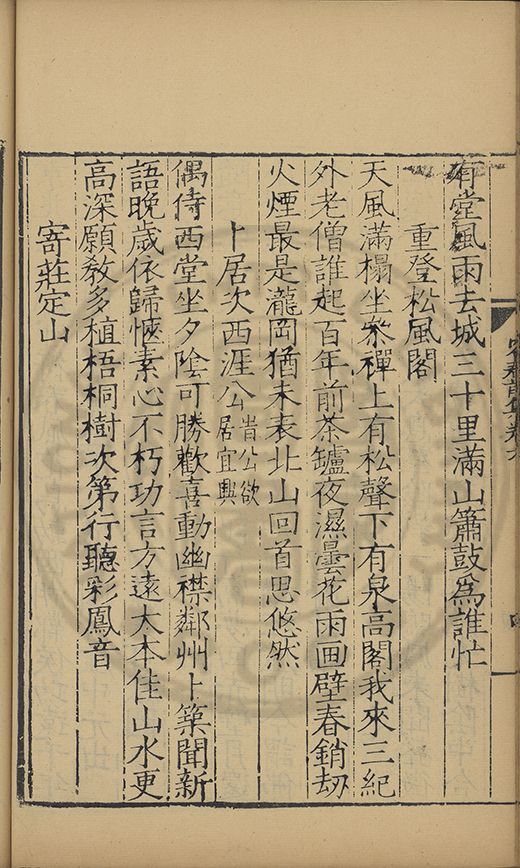 堂風雨去城三十里滿山簫鼓為誰忙
重登松風閣
天風滿榻坐叅禪上有松聲下有泉高閣我來三紀
外老僧誰起百年前茶罏夜濕曇花雨畫壁春銷刼
火煙最是瀧岡猶未表北山回首思悠然
卜居次西涯公 昔公欲居宜興
偶侍西堂坐夕陰可勝歡喜動幽襟鄰州卜築聞新
語晚歲依歸愜素心不朽功言方遠大本佳山水更
高深願教多植梧桐樹次第行聽彩鳳音
寄莊定山